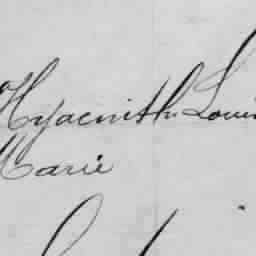 Hyacinth Louis
Marie